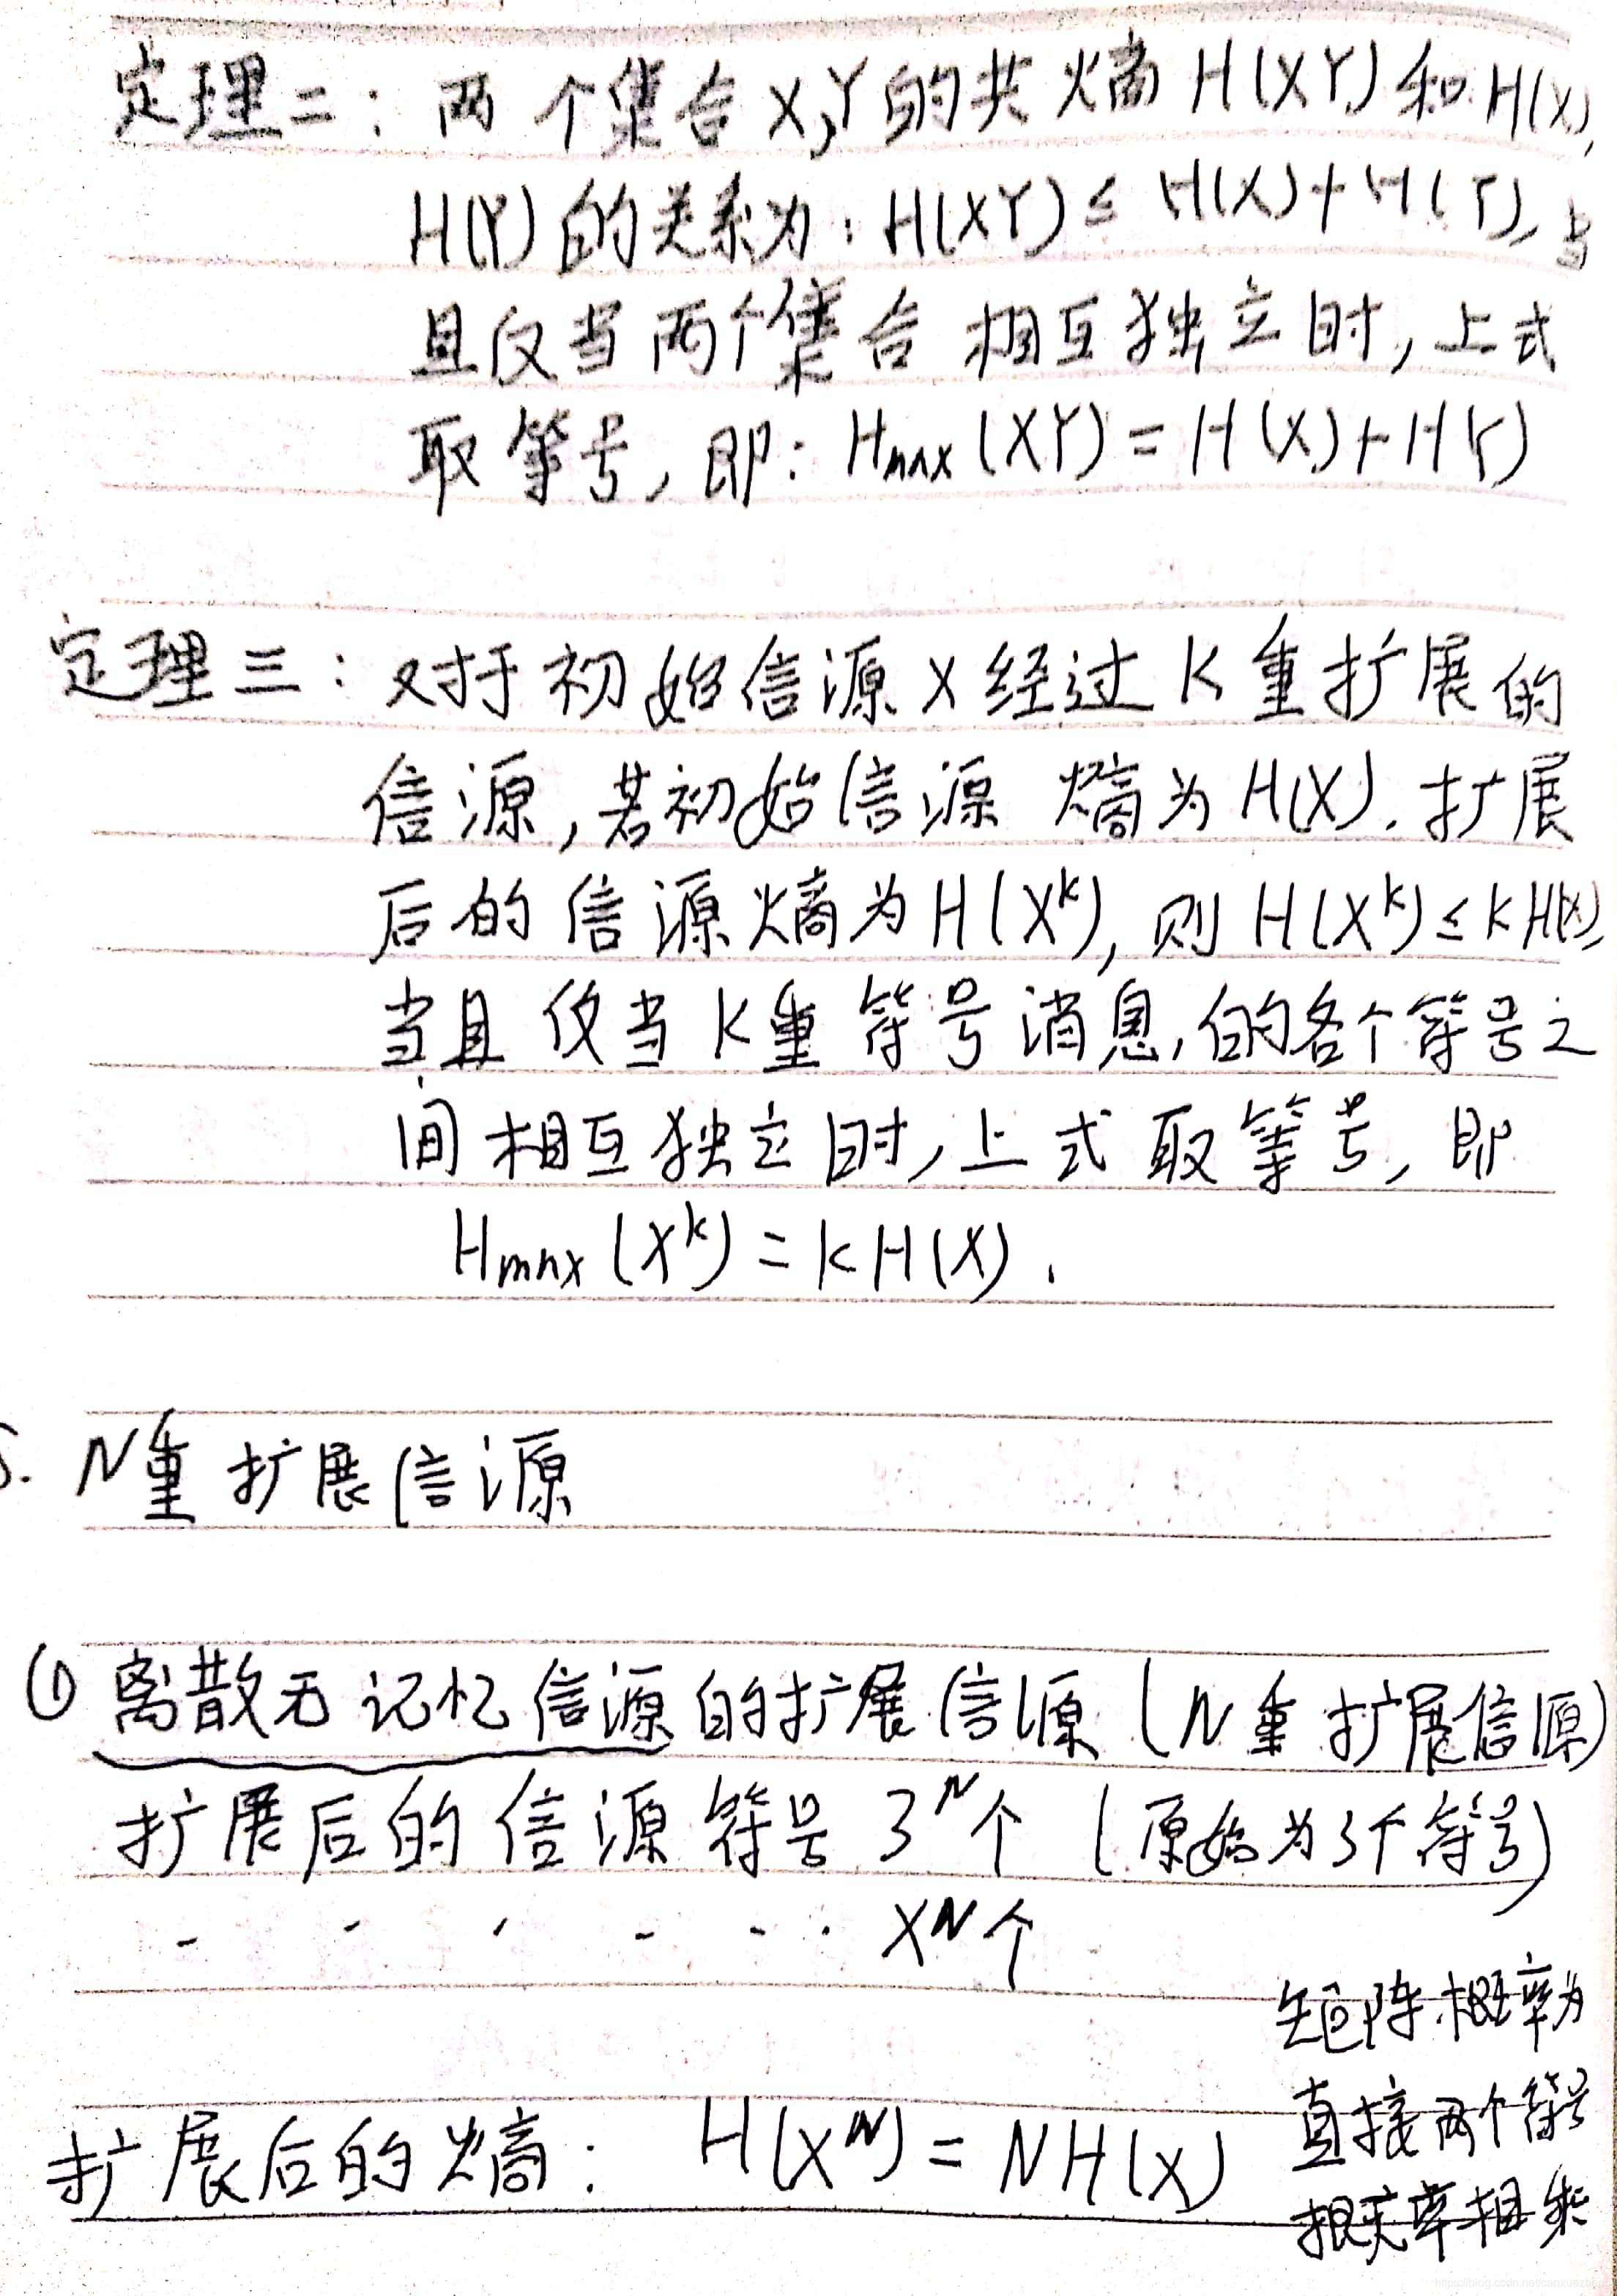 定理二：两个集合X,Y的共熵H(XY)和H(X),
H(Y)的关系为：H(XY)≤H(X)+H(Y),当
且仅当两个集合相互独立时,上式
取等号,即：Hmax(XY)=H(X)+H(Y)
定理三：对于初始信源X经过K重扩展的
信源,若初始信源熵为H(X).扩展
后的信源熵为H(X^k),则H(X^k)≤kH(X),
当且仅当K重符号消息,的各个符号之
间相互独立时,上式取等号,即
Hmax(X^k)=kH(X).
5. N重扩展信源
① 离散无记忆信源的扩展信源(N重扩展信源)
扩展后的信源符号3^N个(原始为3个符号)
- - - - - · X^N个
矩阵概率为
直接两个符号
概率相乘
扩展后的熵：H(X^N)=NH(X)